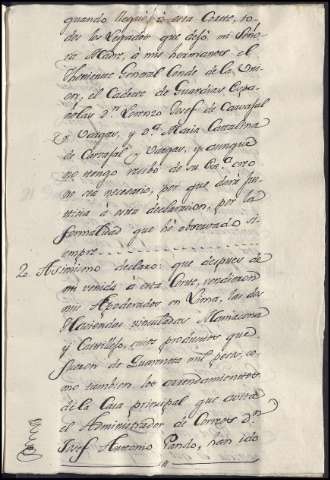 quando llegué á esta Corte, to-
dos los Legados que dejó mi Seño-
ra Madre, á mis hermanos el
Theniente General Conde de la Uni-
on, el Cadete de Guardias Espa-
ñolas Dn. Lorenzo Josef de Carvajal
y Vargas, y Da. Maria Catalina
de Carvajal y Vargas, y aunque
no tengo recibo de su Exa. creo
no sea necesario, por que dará jus-
ticia á esta declaracion, por la
formalidad que há observado si-
empre
2. Asimismo declaro: que despues de
mi venida a esta Corte, vendieron
mis Apoderados en Lima, las dos
Haciendas vinculadas Mamacona
y Castillejo, cuyos productos que
fueron de Quarenta mil pesos, co-
mo tambien los arrendamientos
de la Casa principal que
el Administrador de Correos Dn.
Josef Antonio Pando, han ido